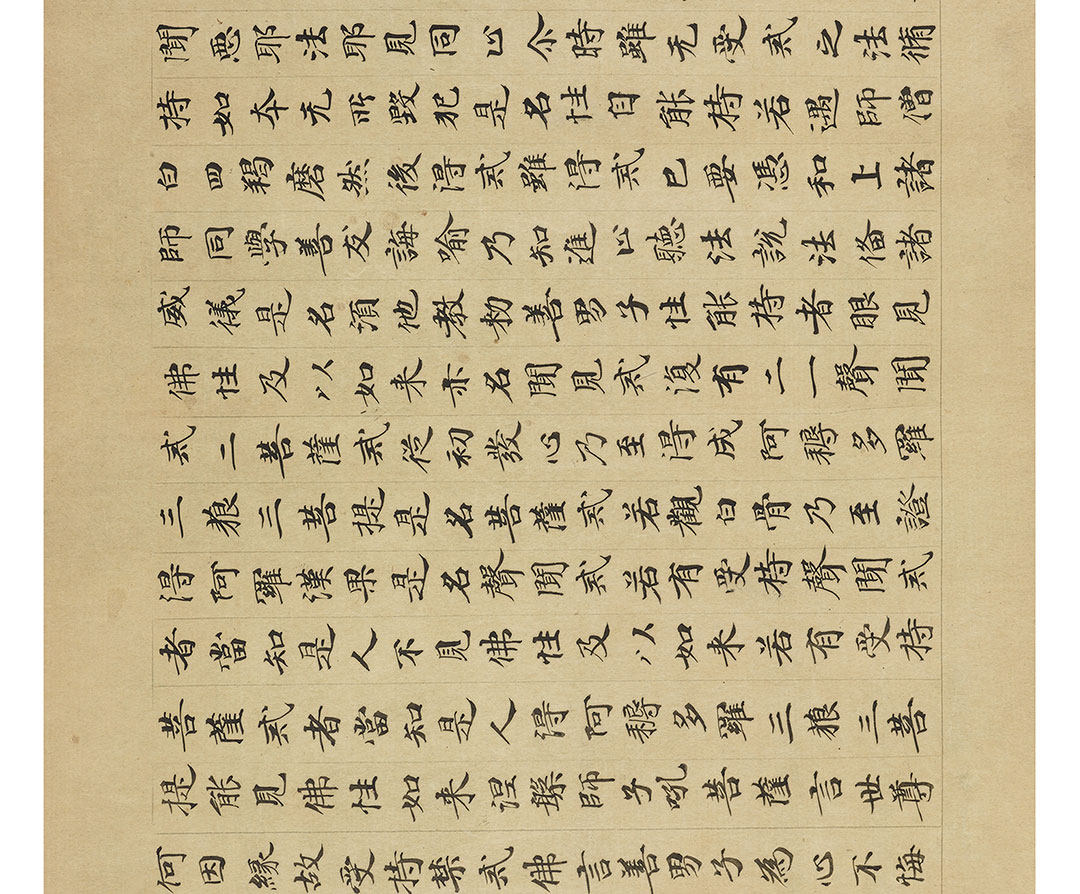 聞惡耶法耶見同止尒時雖无受戒之法脩
持如本无所毀犯是名性自能持若遇師僧
白四羯磨然後得戒雖得戒已要憑和上諸
師同學善友誨喻乃知進止聽法說法俻諸
威儀是名湏他教勑善男子性能持者眼見
佛性及以如来亦名聞見戒復有二一聲聞
戒二菩薩戒從初發心乃至得成阿耨多羅
三藐三菩提是名菩薩戒若觀白骨乃至證
得阿羅漢果是名聲聞戒若有受持聲聞戒
者當知是人不見佛性及以如来若有受持
菩薩戒者當知是人得阿耨多羅三藐三菩
提能見佛性如来涅槃師子吼菩薩言世尊
何因緣故受持禁戒佛言善男子為心不悔